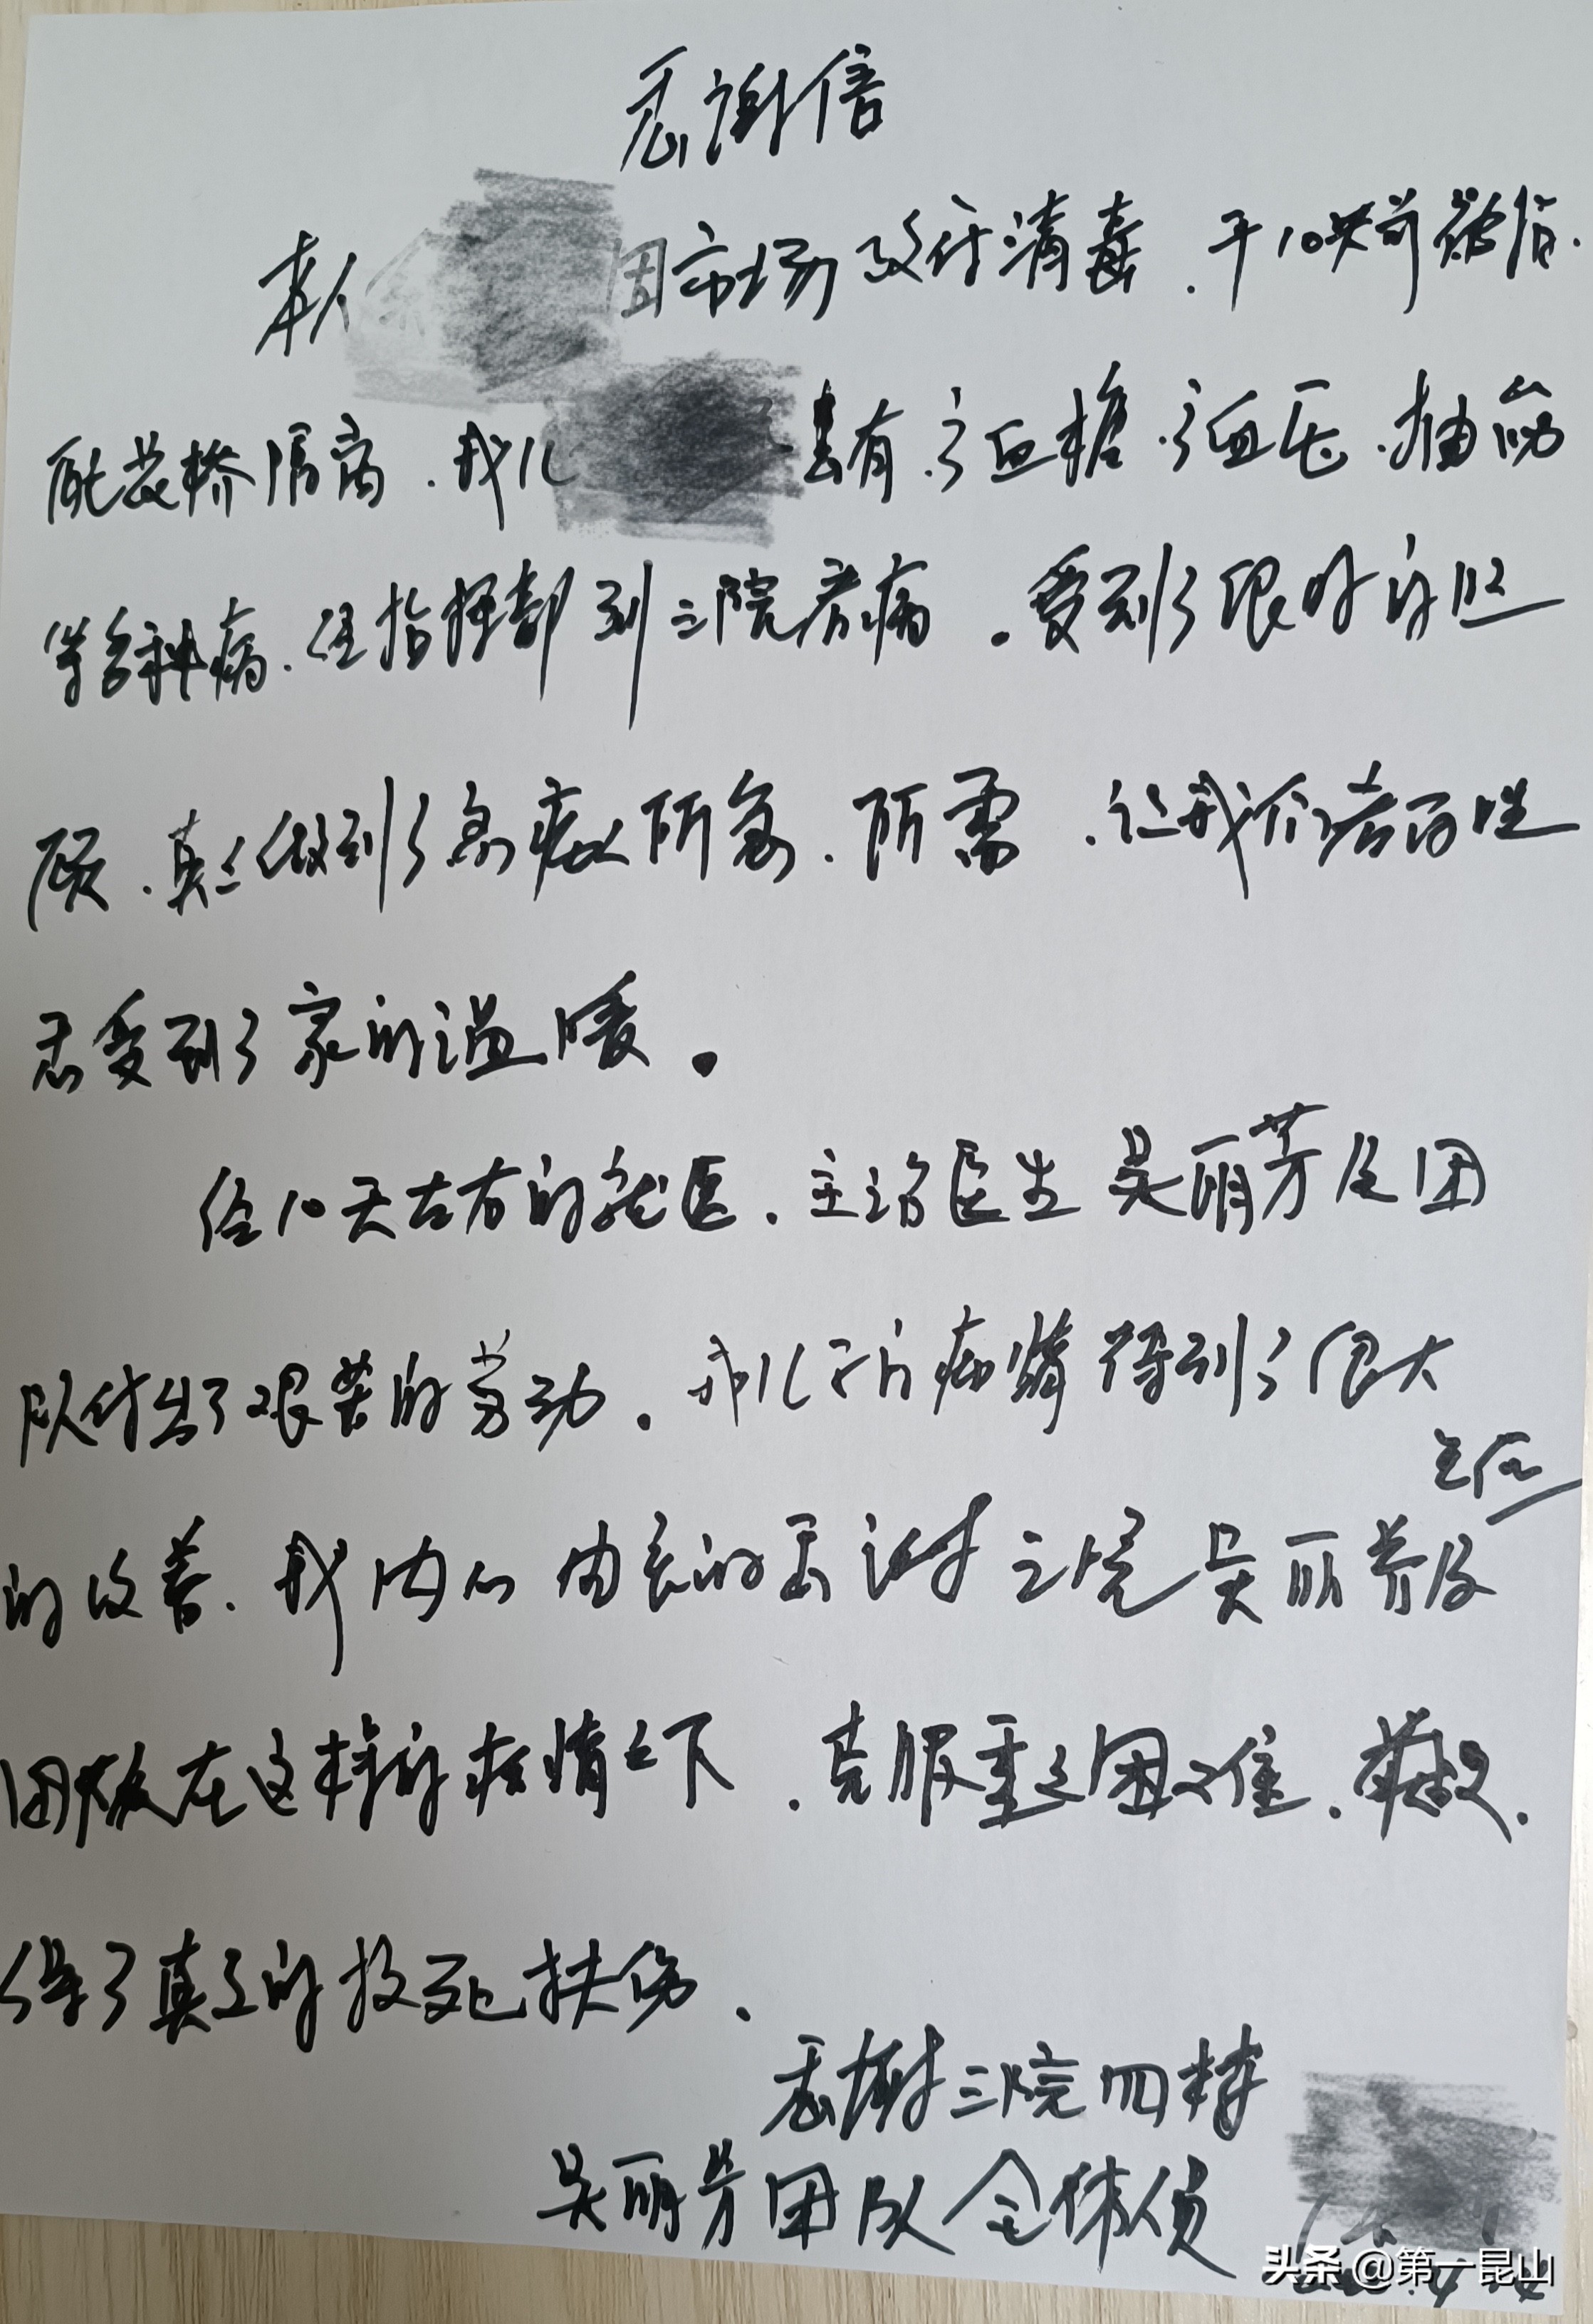 感谢信
本人 因市场 消毒.于10天前
隔离.我儿 患有.高血糖.高血压.抽筋
等多种病.经指挥部到三院看病.受到了很好的照
顾.真正做到了急病人所急.所需.让我们老百姓
感受到了家的温暖.
经10天左右的就医.主治医生吴丽芳及团
队付出了艰苦的劳动.我儿子的病情得到了很大
主任
的改善.我内心由衷的感谢三院吴丽芳及
团队在这样的疫情之下.克服重重困难.
得了真正的救死扶伤.
感谢三院四楼
吴丽芳团队全体人员
头条 @第一昆山